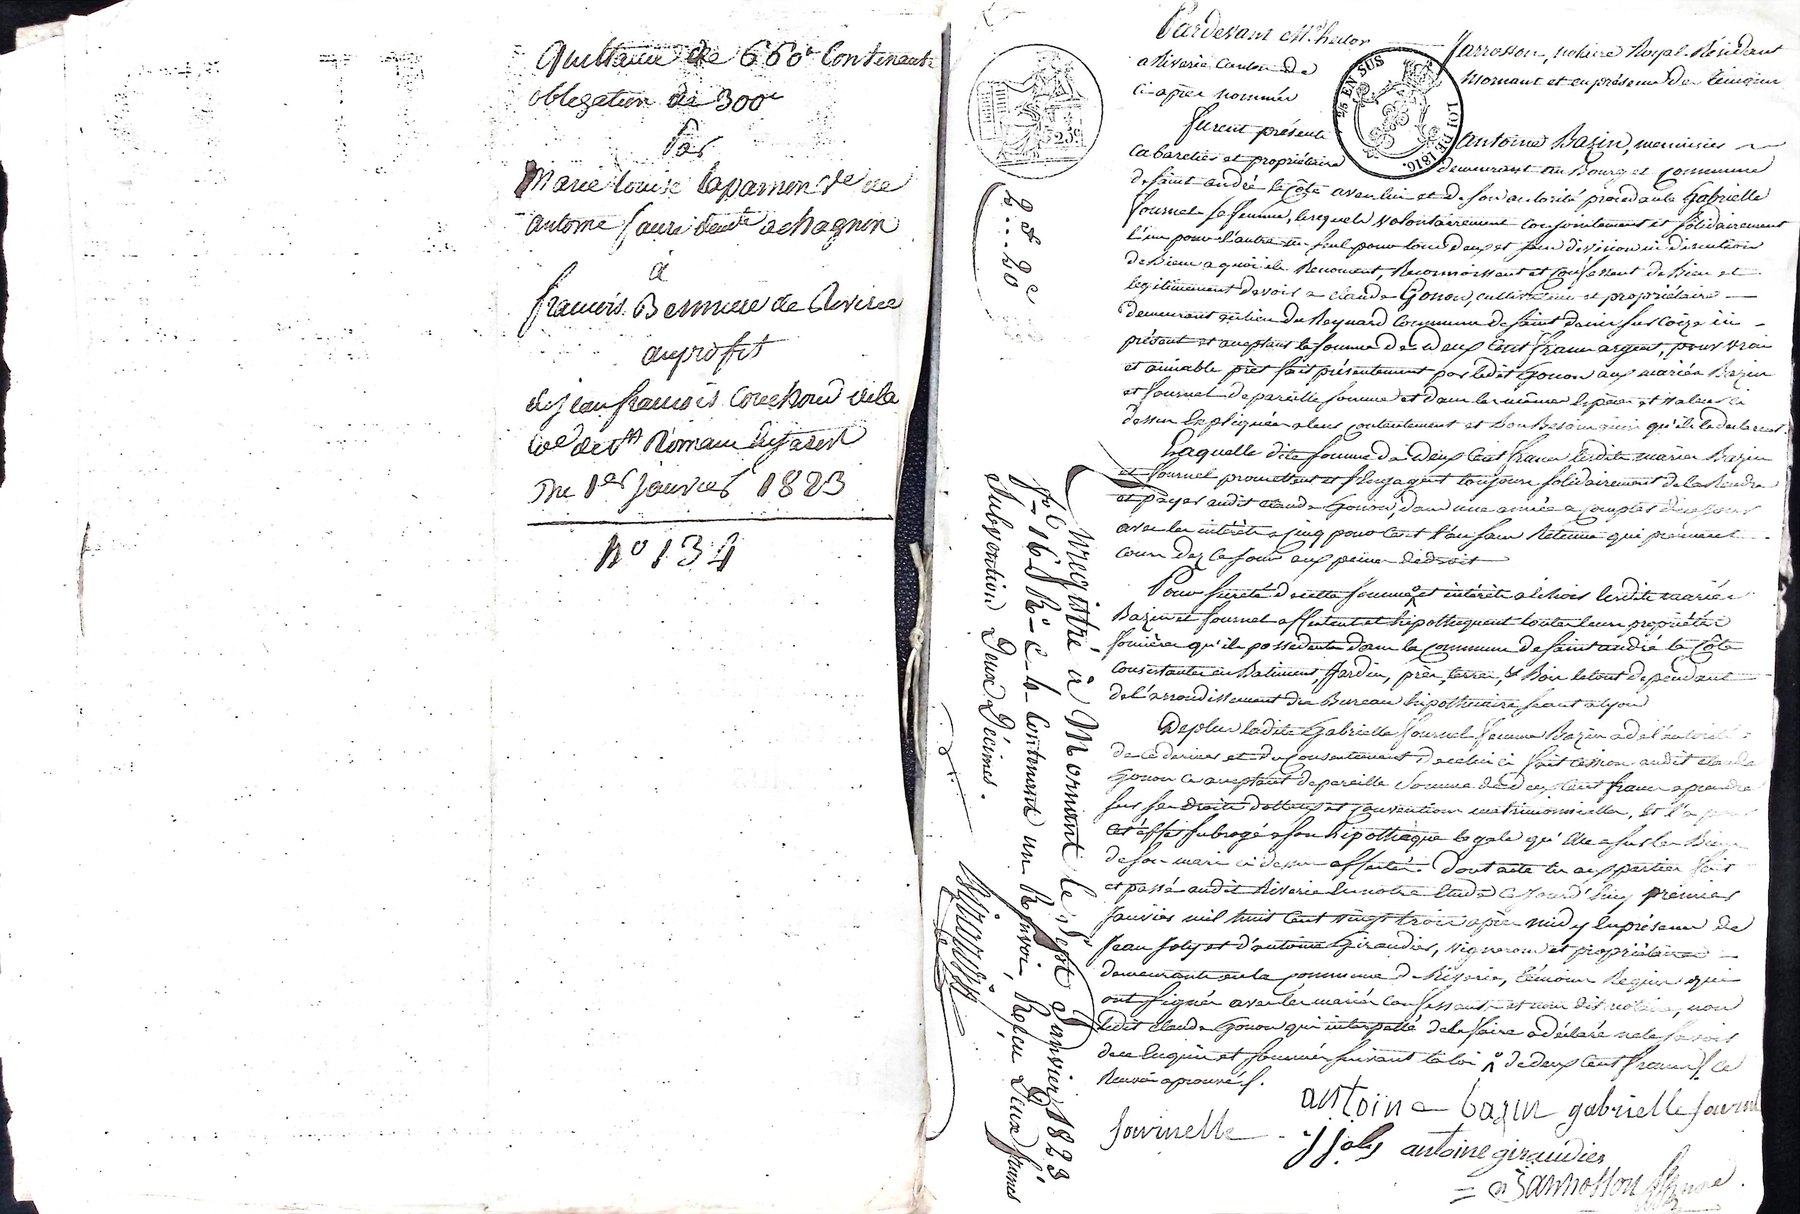 Quittance de 660f Contenant
obligation de 300f
Par
Marie louise lapamon Ve de
antoine faure demte a chagnon
à
francois Bonniere de Riverie
au profit
de jean francois Couchoud de la
Coe de St Romain en jarest
Du 1er janvier 1823
No 134
25c
2/5 EN SUS
LOI DE 1816
2f 20c
Enregistré à Mornant le Sept Janvier 1823
fo 16 Ro c Contenant un Renvoi, Reçu deux francs
Subvention deux Décimes.
Pardevant Me hector Jarrosson, notaire Royal Résidant
a Riverie Canton de Mornant et en présence des témoins
ci-après nommés
Furent présents Antoine Bazin, menuisier
Cabaretier et propriétaire demeurant au Bourg et Commune
de saint andré la Côte avec lui et de son autorité procédante Gabrielle
fournel sa femme, lesquels volontairement conjointement et solidairement
l'un pour l'autre un seul pour tous deux et sans division ni discution
de biens a quoi ils Renoncent, Reconnoissent et confessent de bien et
légitimement devoir a claude Gonon, cultivateur et propriétaire
demeurant au lieu du Reynard Commune de saint denis sur Coize ici
présent et acceptant la somme de deux Cent francs argent, pour vrai
et amiable prêt fait présentement par ledit Gonon aux mariés Bazin
et fournel de pareille somme et dans les mêmes espèces et valeurs ci
dessus expliquées a leur contentement et ainsi qu'ils le déclarent
Laquelle dite somme de deux Cent francs lesdits mariés Bazin
et fournel promettent et s'engagent toujours solidairement de la Rendre
et payer audit claude Gonon, dans une année a compter de ce jour
avec les intérêts a cinq pour Cent l'an sans Retenue qui prennent
cours dez ce jour aux peines de droit
Pour sureté de cette somme et intérêts a échoir lesdits mariés
Bazin et fournel affectent et hipothequent toutes leurs propriétés
foncières qu'ils possedent dans la commune de saint andré la Côte
consistantes en Batiments, Jardin, prés, terres, & Bois le tout dépendant
de l'arrondissement du Bureau hipothécaire séant a Lyon
De plus ladite Gabrielle fournel femme Bazin a de l'autorité
de ce dernier et du consentement de celui ci fait cession audit claude
Gonon ce acceptant de pareille somme de deux Cent francs a prendre
sur ses droits dotaux et convention matrimonielle, et l'a pour
cet effet subrogé a son hipothèque legale qu'elle a sur les Biens
de son mari ci dessus affectés. Dont acte lu aux parties fait
et passé audit Riverie en notre Etude ce jourd'huy premier
Janvier mil huit Cent vingt trois après midy en présence de
Jean Joly et d'antoine Giraudier, vigneron et propriétaire
demeurants en la commune de Riverie, témoins Requis qui
ont signés avec les mariés confessants et nous dit notaire, non
ledit claude Gonon qui interpellé de le faire a déclaré ne le savoir
de ce enquis et sommés suivant la loi de deux Cent francs ce
Renvoi aprouvé.
antoine bazin gabrielle fournel
J Joly antoine giraudier
Jarrosson